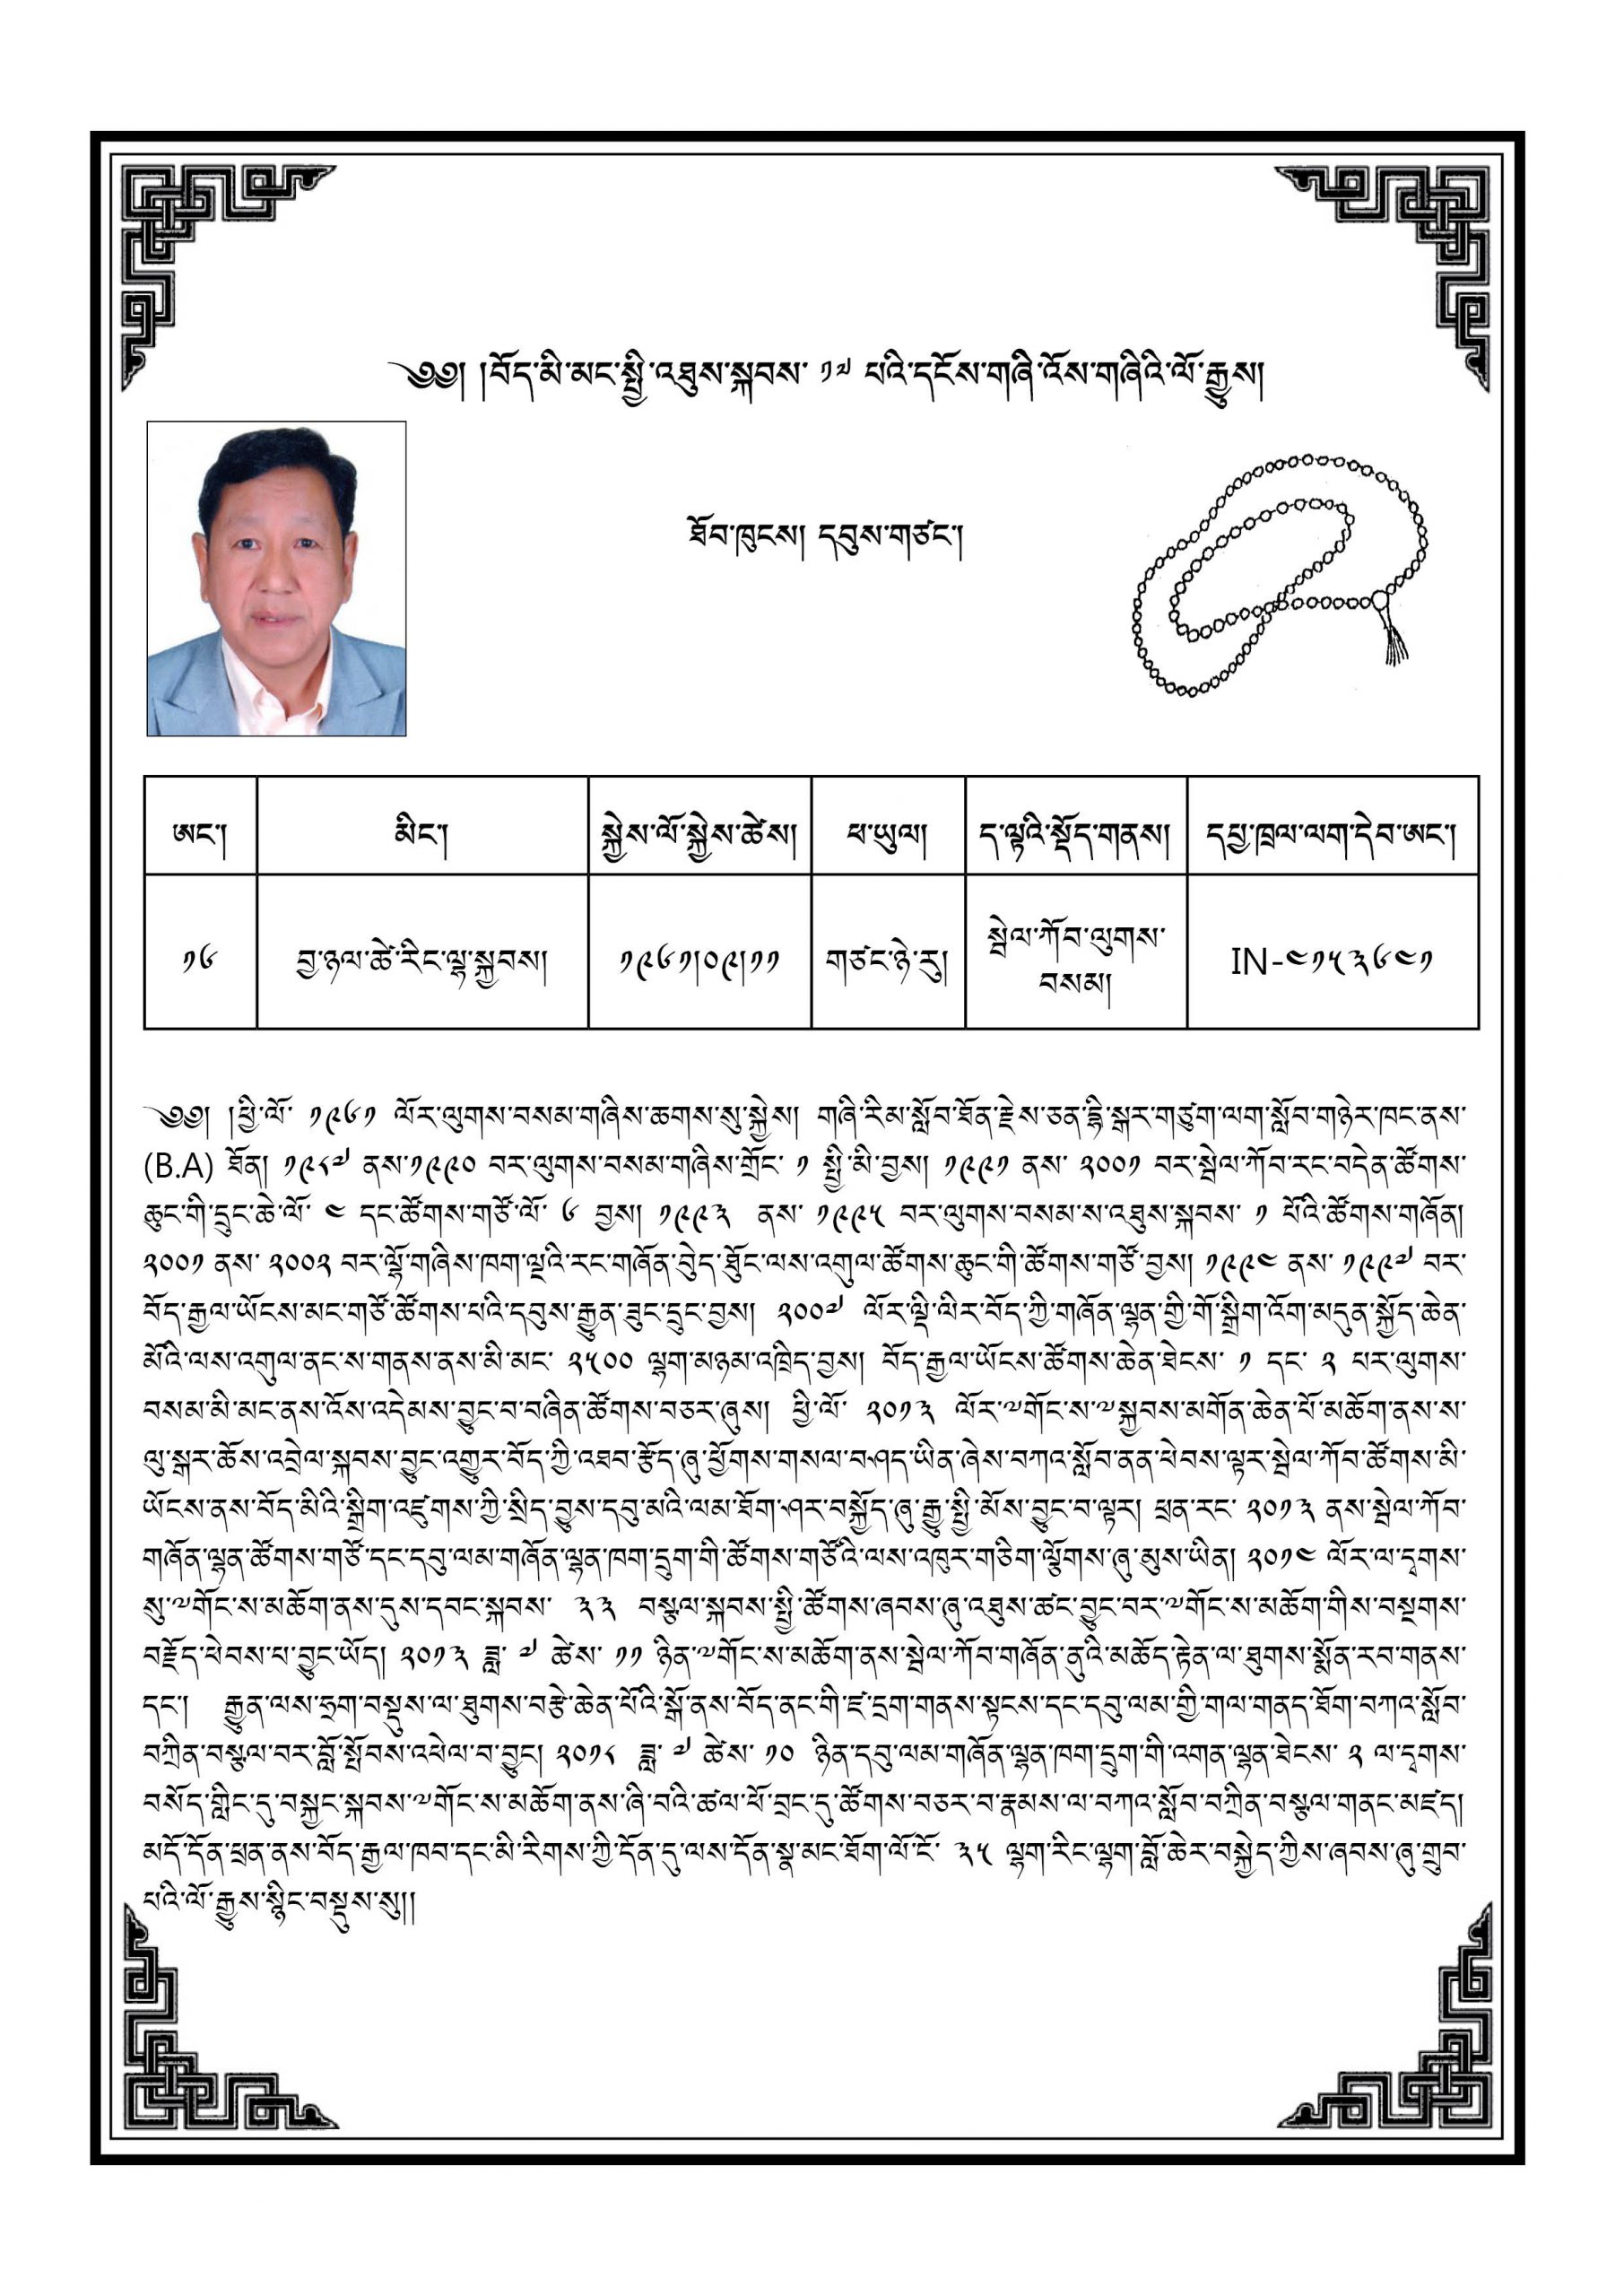 ༄༅། །བོད་མི་མང་སྤྱི་འཐུས་སྐབས་ ༡༧ པའི་དངོས་གཞི་འོས་གཞིའི་ལོ་རྒྱུས།
ཐོབ་ཁུངས། དབུས་གཙང་།
ཨང་། མིང་། སྐྱེས་ལོ་སྐྱེས་ཚེས། ཕ་ཡུལ། ད་ལྟའི་སྡོད་གནས། དཔྱ་ཁྲལ་ལག་དེབ་ཨང་།
༡༦ བྱ་ཉལ་ཚེ་རིང་ལྷ་སྐྱབས། ༡༩༦༡།༠༩།༡༡ གཙང་ཉེ་རུ། སྦེལ་ཀོབ་ལུགས་ IN-༤༡༥༣༦༤༡
བསམ།
༄༅། །ཕྱི་ལོ་ ༡༩༦༡ ལོར་ལུགས་བསམ་གཞིས་ཆགས་སུ་སྐྱེས། གཞི་རིམ་སློབ་ཐོན་རྗེས་ཅན་ཌི་སྒར་གཙུག་ལག་སློབ་གཉེར་ཁང་ནས་
(B.A) ཐོན། ༡༩༨༧ ནས་༡༩༩༠ བར་ལུགས་བསམ་གཞིས་གྲོང་ ༡ སྤྱི་མི་བྱས། ༡༩༩༡ ནས་ ༢༠༠༡ བར་སྦེལ་ཀོབ་རང་བདེན་ཚོགས་
ཆུང་གི་དྲུང་ཆེ་ལོ་ ༤ དང་ཚོགས་གཙོ་ལོ་ ༦ བྱས། ༡༩༩༣ ནས་ ༡༩༩༥ བར་ལུགས་བསམ་ས་འཐུས་སྐབས་ ༡ པོའི་ཚོགས་གཞོན།
༢༠༠༡ ནས་ ༢༠༠༢ བར་ལྷོ་གཞིས་ཁག་ལྔའི་རང་གཞོན་བེུད་ཐོུང་ལས་འགུལ་ཚོགས་ཆུང་གི་ཚོགས་གཙོ་བྱས། ༡༩༩༤ ནས་ ༡༩༩༧ བར་
བོད་རྒྱལ་ཡོངས་མང་གཙོ་ཚོགས་པའི་དབུས་རྒྱུན་ཟུང་དྲུང་བྱས། ༢༠༠༧ ལོར་ལྡི་ལིར་བོད་ཀྱི་གཞོན་ལྷན་གྱི་གོ་སྒྲིག་འོག་མདུན་སྐྱོད་ཆེན་
མོའི་ལས་འགུལ་ནང་ས་གནས་ནས་མི་མང་ ༢༥༠༠ ལྷག་མཉམ་འཁྲིད་བྱས། བོད་རྒྱལ་ཡོངས་ཚོགས་ཆེན་ཐེངས་ ༡ དང་ ༢ པར་ལུགས་
བསམ་མི་མང་ནས་འོས་འདེམས་བྱུང་བ་བཞིན་ཚོགས་བཅར་ཞུས། ཕྱི་ལོ་ ༢༠༡༣ ལོར་༸གོང་ས་༸སྐྱབས་མགོན་ཆེན་པོ་མཆོག་ནས་ས་
ལུ་སྒར་ཆོས་འབྲེལ་སྐབས་བྱུང་འགྱུར་བོད་ཀྱི་འཐབ་རྩོད་ཞུ་ཕྱོགས་གསལ་བཤད་ཡིན་ཞེས་བཀའ་སློབ་ནན་ཕེབས་ལྟར་སྦེལ་ཀོབ་ཚོགས་མི་
ཡོངས་ནས་བོད་མིའི་སྒྲིག་འཛུགས་ཀྱི་སྲིད་བྱུས་དབུ་མའི་ལམ་ཐོག་ཤར་བསྐྱོད་ཞུ་རྒྱུ་སྤྱི་མོས་བྱུང་བ་ལྟར། ཕྲན་རང་ ༢༠༡༣ ནས་སྦེལ་ཀོབ་
གཞོན་ལྷན་ཚོགས་གཙོ་དང་དབུ་ལམ་གཞོན་ལྷན་ཁག་དྲུག་གི་ཚོགས་གཙོའི་ལས་འཁུར་གཅིག་ལྕོགས་ཞུ་མུས་ཡིན། ༢༠༡༤ ལོར་ལ་དྭགས་
སུ་༸གོང་ས་མཆོག་ནས་དུས་དབང་སྐབས་ ༣༣ བསྩལ་སྐབས་སྤྱི་ཚོགས་ཞབས་ཞུ་འཐུས་ཚང་བྱུང་བར་༸གོང་ས་མཆོག་གིས་བསྔགས་
བརྗོད་ཕེབས་པ་བྱུང་ཡོད། ༢༠༡༣ ཟླ་ ༧ ཚེས་ ༡༡ ཉིན་༸གོང་ས་མཆོག་ནས་སྦེལ་ཀོབ་གཞོན་ནུའི་མཆོད་རྟེན་ལ་ཐུགས་སྨོན་རབ་གནས་
དང་། རྒྱུན་ལས་ཧྲག་བསྡུས་ལ་ཐུགས་བརྩེ་ཆེན་པོའི་སྒོ་ནས་བོད་ནང་གི་ཛ་དྲག་གནས་སྟངས་དང་དབུ་ལམ་གྱི་གལ་གནད་ཐོག་བཀའ་སློབ་
བཀྲིན་བསྩལ་བར་བློ་སྤོབས་འཕེལ་བ་བྱུང། ༢༠༡༨ ཟླ་ ༧ ཚེས་ ༡༠ ཉིན་དབུ་ལམ་གཞོན་ལྷན་ཁག་དྲུག་གི་འགན་ལྷན་ཐེངས་ ༢ ལ་དྭགས་
བསོད་གླིང་དུ་བསྐྱང་སྐབས་༸གོང་ས་མཆོག་ནས་ཞི་བའི་ཚལ་ཕོ་བྲང་དུ་ཚོགས་བཅར་བ་རྣམས་ལ་བཀའ་སློབ་བཀྲིན་བསྩལ་གནང་མཛད།
མདོ་དོན་ཕྲན་ནས་བོད་རྒྱལ་ཁབ་དང་མི་རིགས་ཀྱི་དོན་དུ་ལས་དོན་སྣ་མང་ཐོག་ལོ་ངོ་ ༣༥ ལྷག་རིང་ལྷག་བློ་ཆེར་བསྐྱེད་ཀྱིས་ཞབས་ཞུ་གྲུབ་
པའི་ལོ་རྒྱུས་སྙིང་བསྡུས་སུ།།